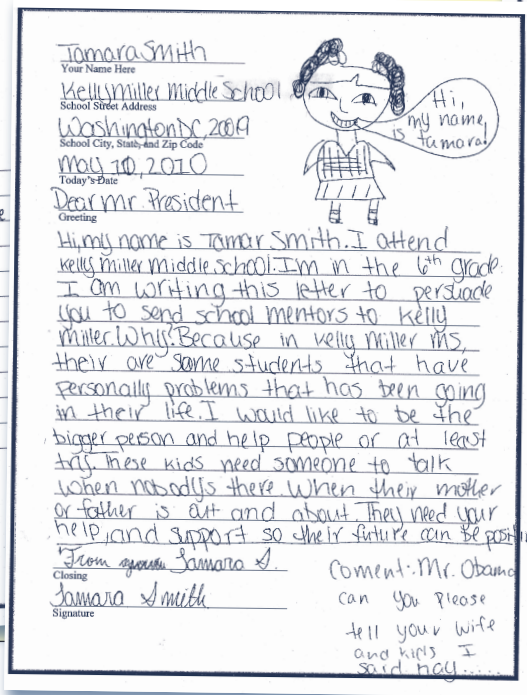 Tamara Smith
Your Name Here
Kelly Miller Middle School
School Street Address
Washington DC, 20019
School City, State, and Zip Code
May 10, 2010
Today's Date
Dear Mr. President
Greeting
Hi,
my name
is tamara!
Hi, my name is Tamar Smith. I attend
kelly miller middle school. I'm in the 6th grade.
I am writing this letter to persuade
you to send school mentors to Kelly
miller. Why? Because in kelly miller ms,
their are some students that have
personally problems that has been going
in their life. I would like to be the
bigger person and help people or at least
try. These kids need someone to talk
when nobodys there. When their mother
or father is out and about. They need your
help, and support so their future can be
From Tamara S.
Closing
Tamara Smith
Signature
Coment: Mr. Obama
can you please
tell your wife
and kids I
said hay......